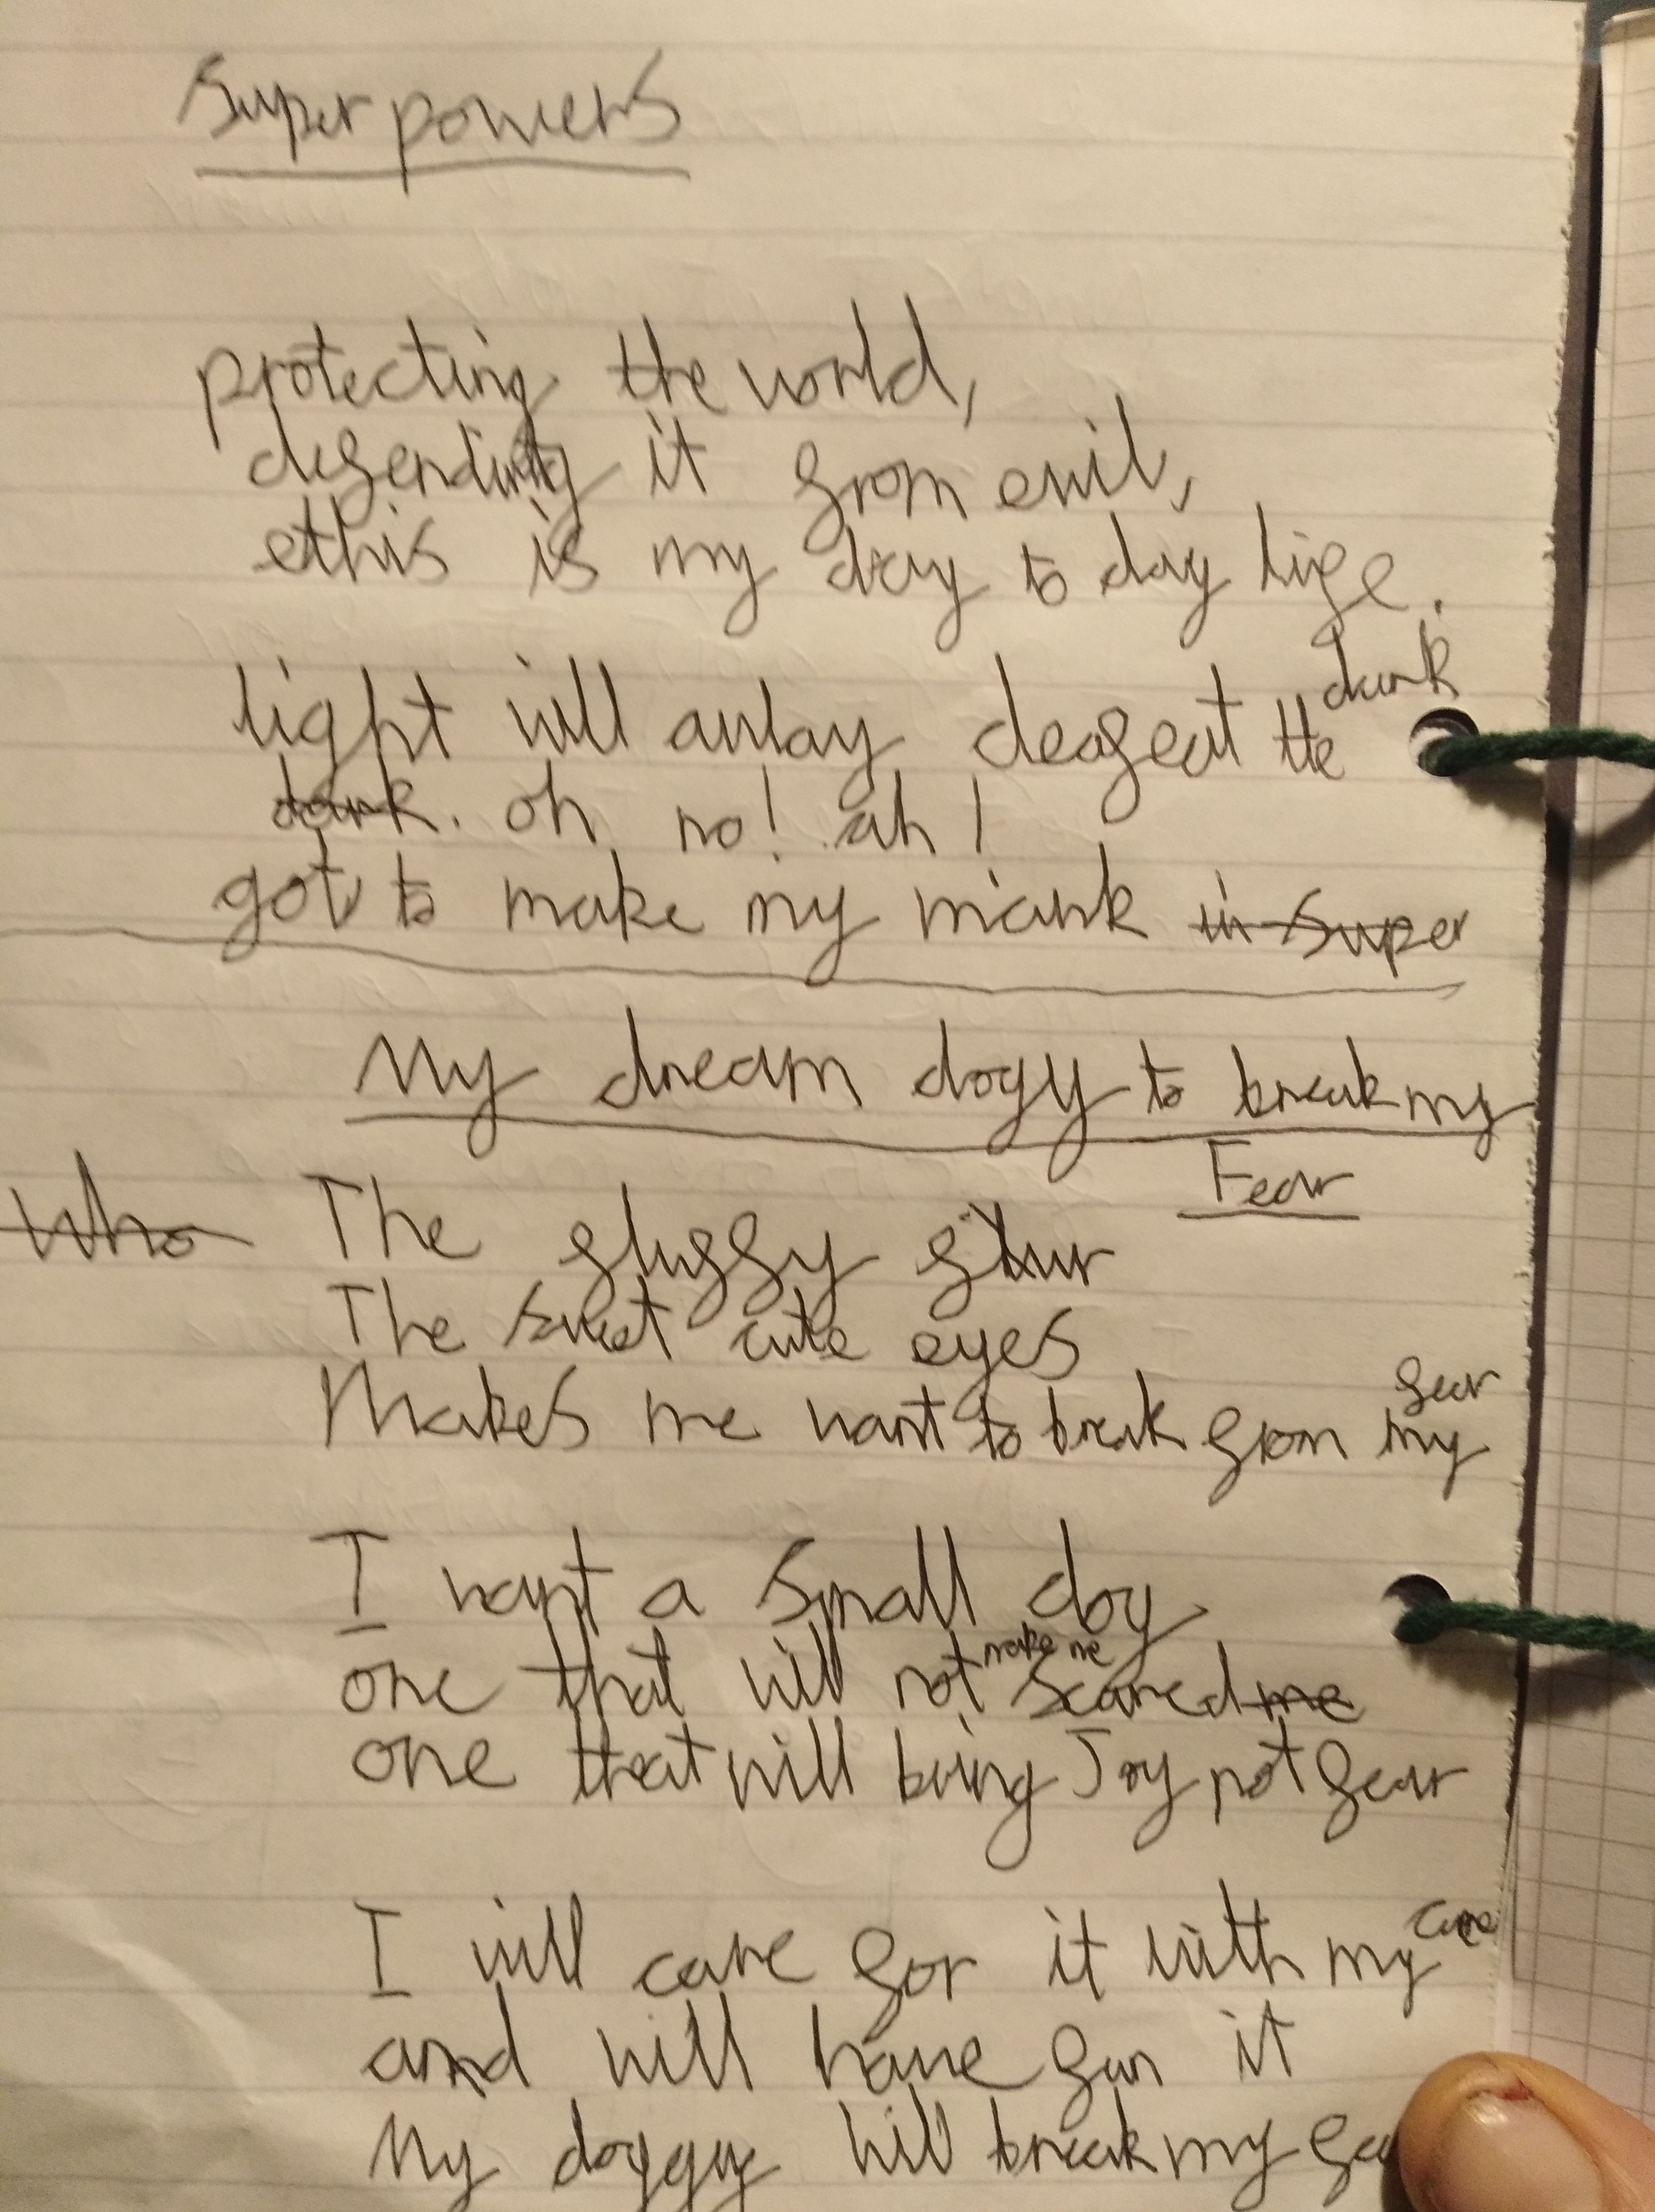 Super powers
protecting the world,
defending it from evil,
this is my day to day life.
light will away defeat the dark
dark. oh no! ah!
got to make my mark in super
My dream dogy to break my
Fear
Who The fluffy fur
The sweet cute eyes
Makes me want to break from my fear
I want a small dog
one that will not make me scared me
one that will bring Joy not fear
I will care for it with my care
and will have fun it
My doggy will break my fea